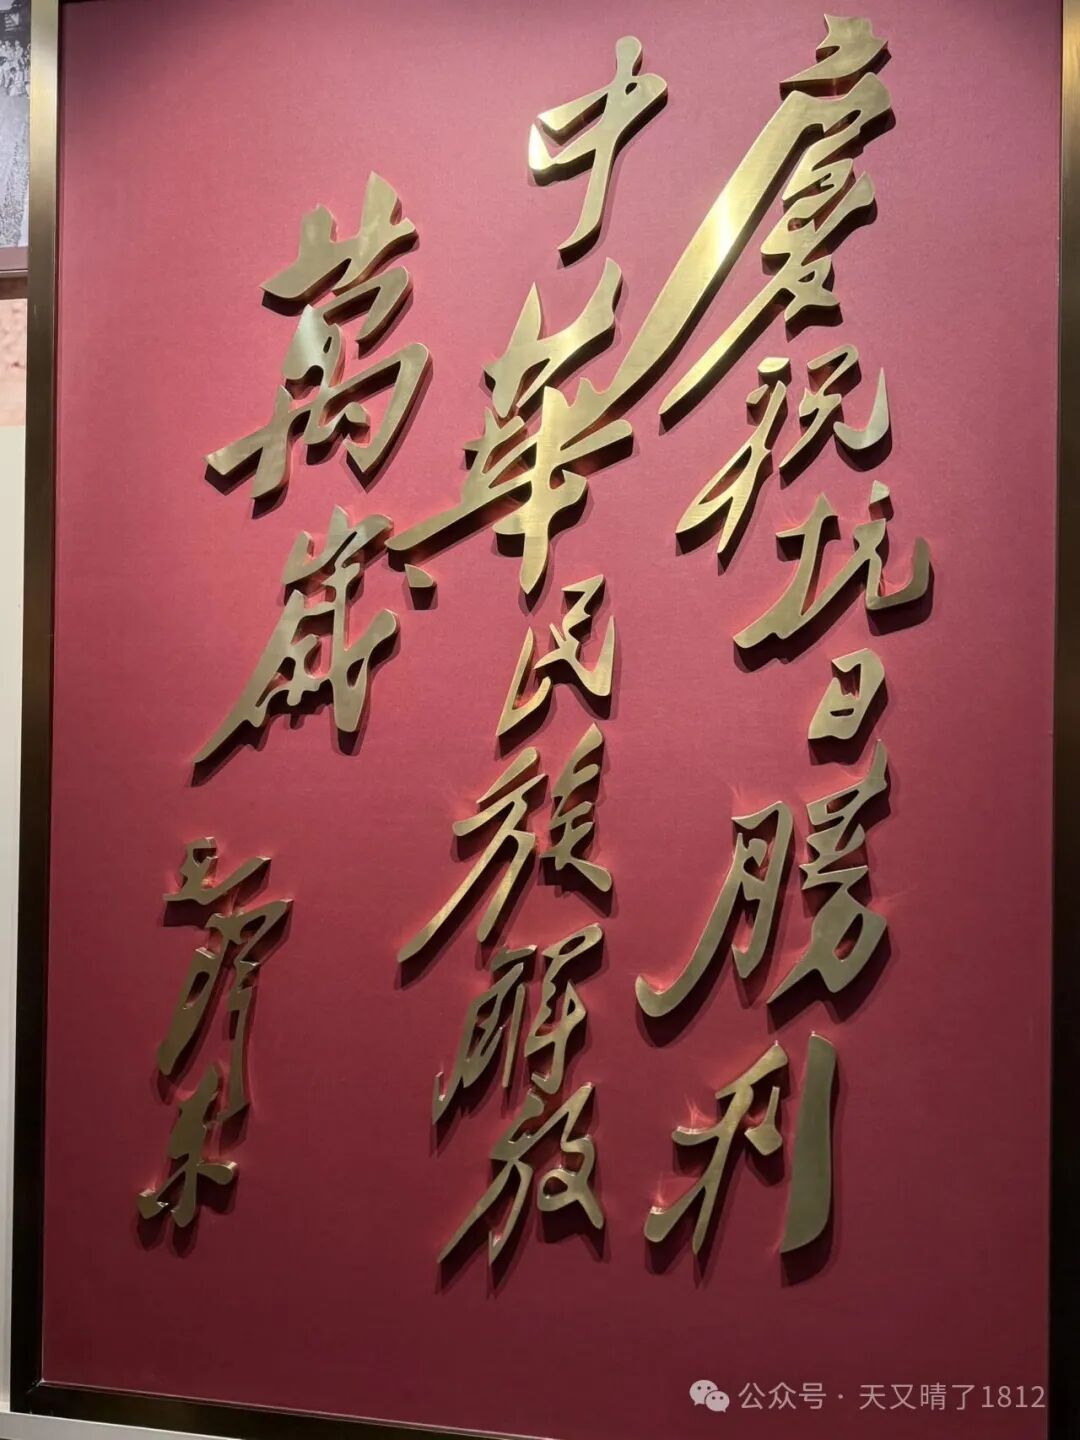 慶祝抗日勝利
中華民族解放
萬歲
毛澤东
公众号·天又晴了1812